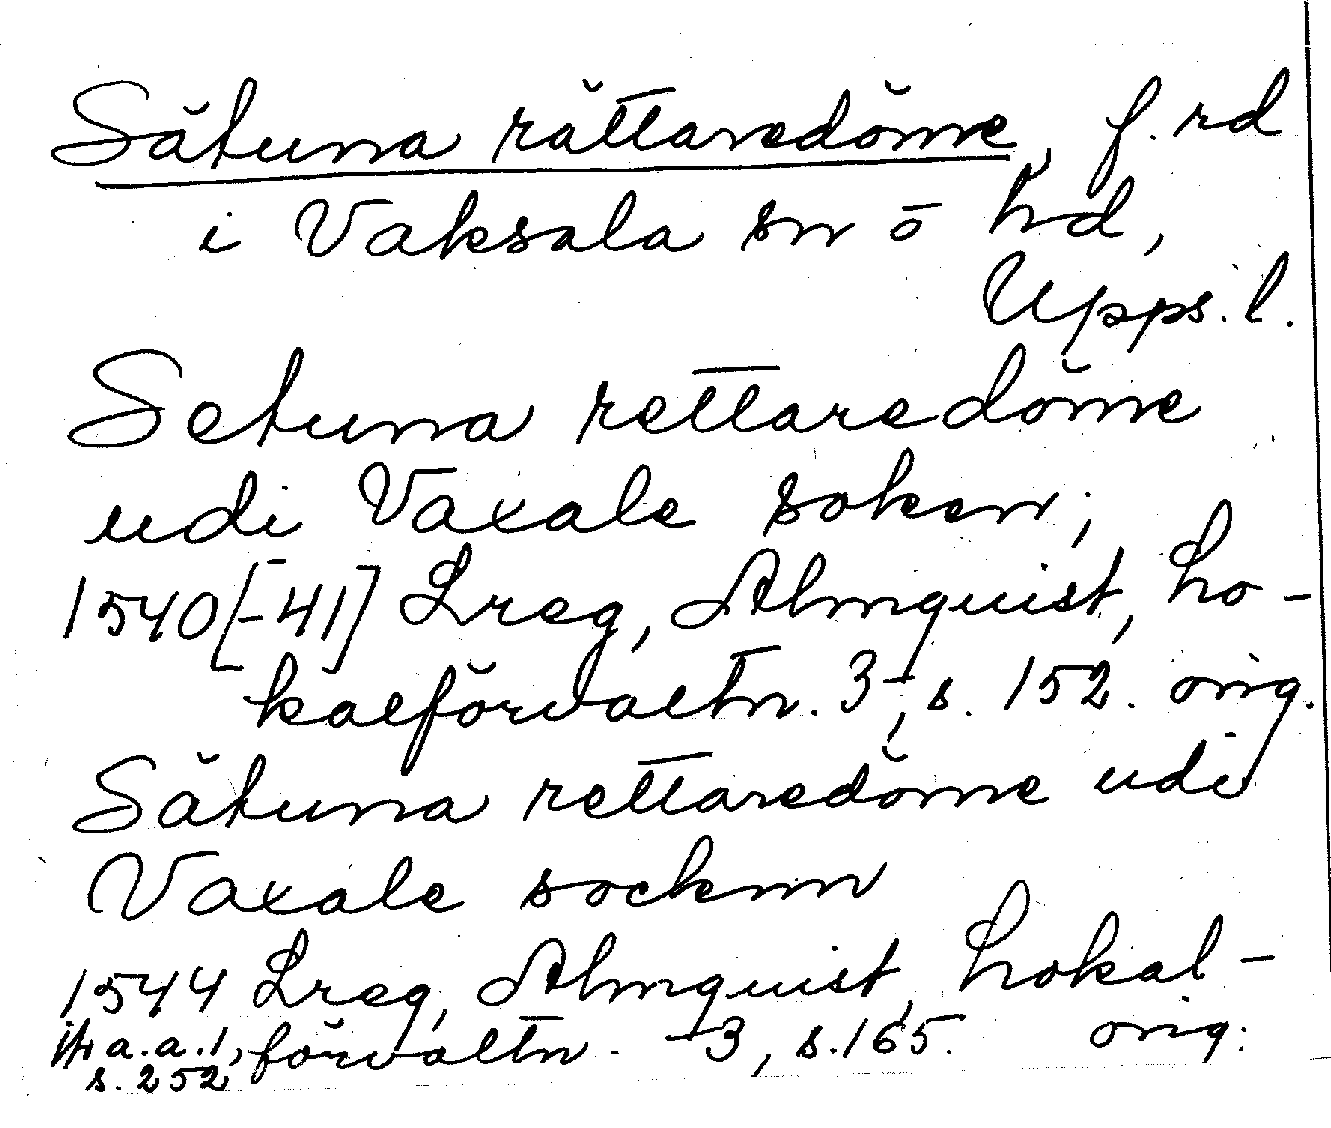 Sätuna rättaredöme, f. rd
i Vaksala sn o hd,
Upps. l.
Setuna rettaredöme
udi Vaxale soken;
1540[-41] Lreg, Almquist, Lo-
kalförvaltn. 3, s. 152. orig.
Sätuna rettaredöme udi
Vaxale socknn
1544 Lreg, Almquist, Lokal-
förvaltn. 3, s. 165. orig.
jfr a.a. 1,
s. 252